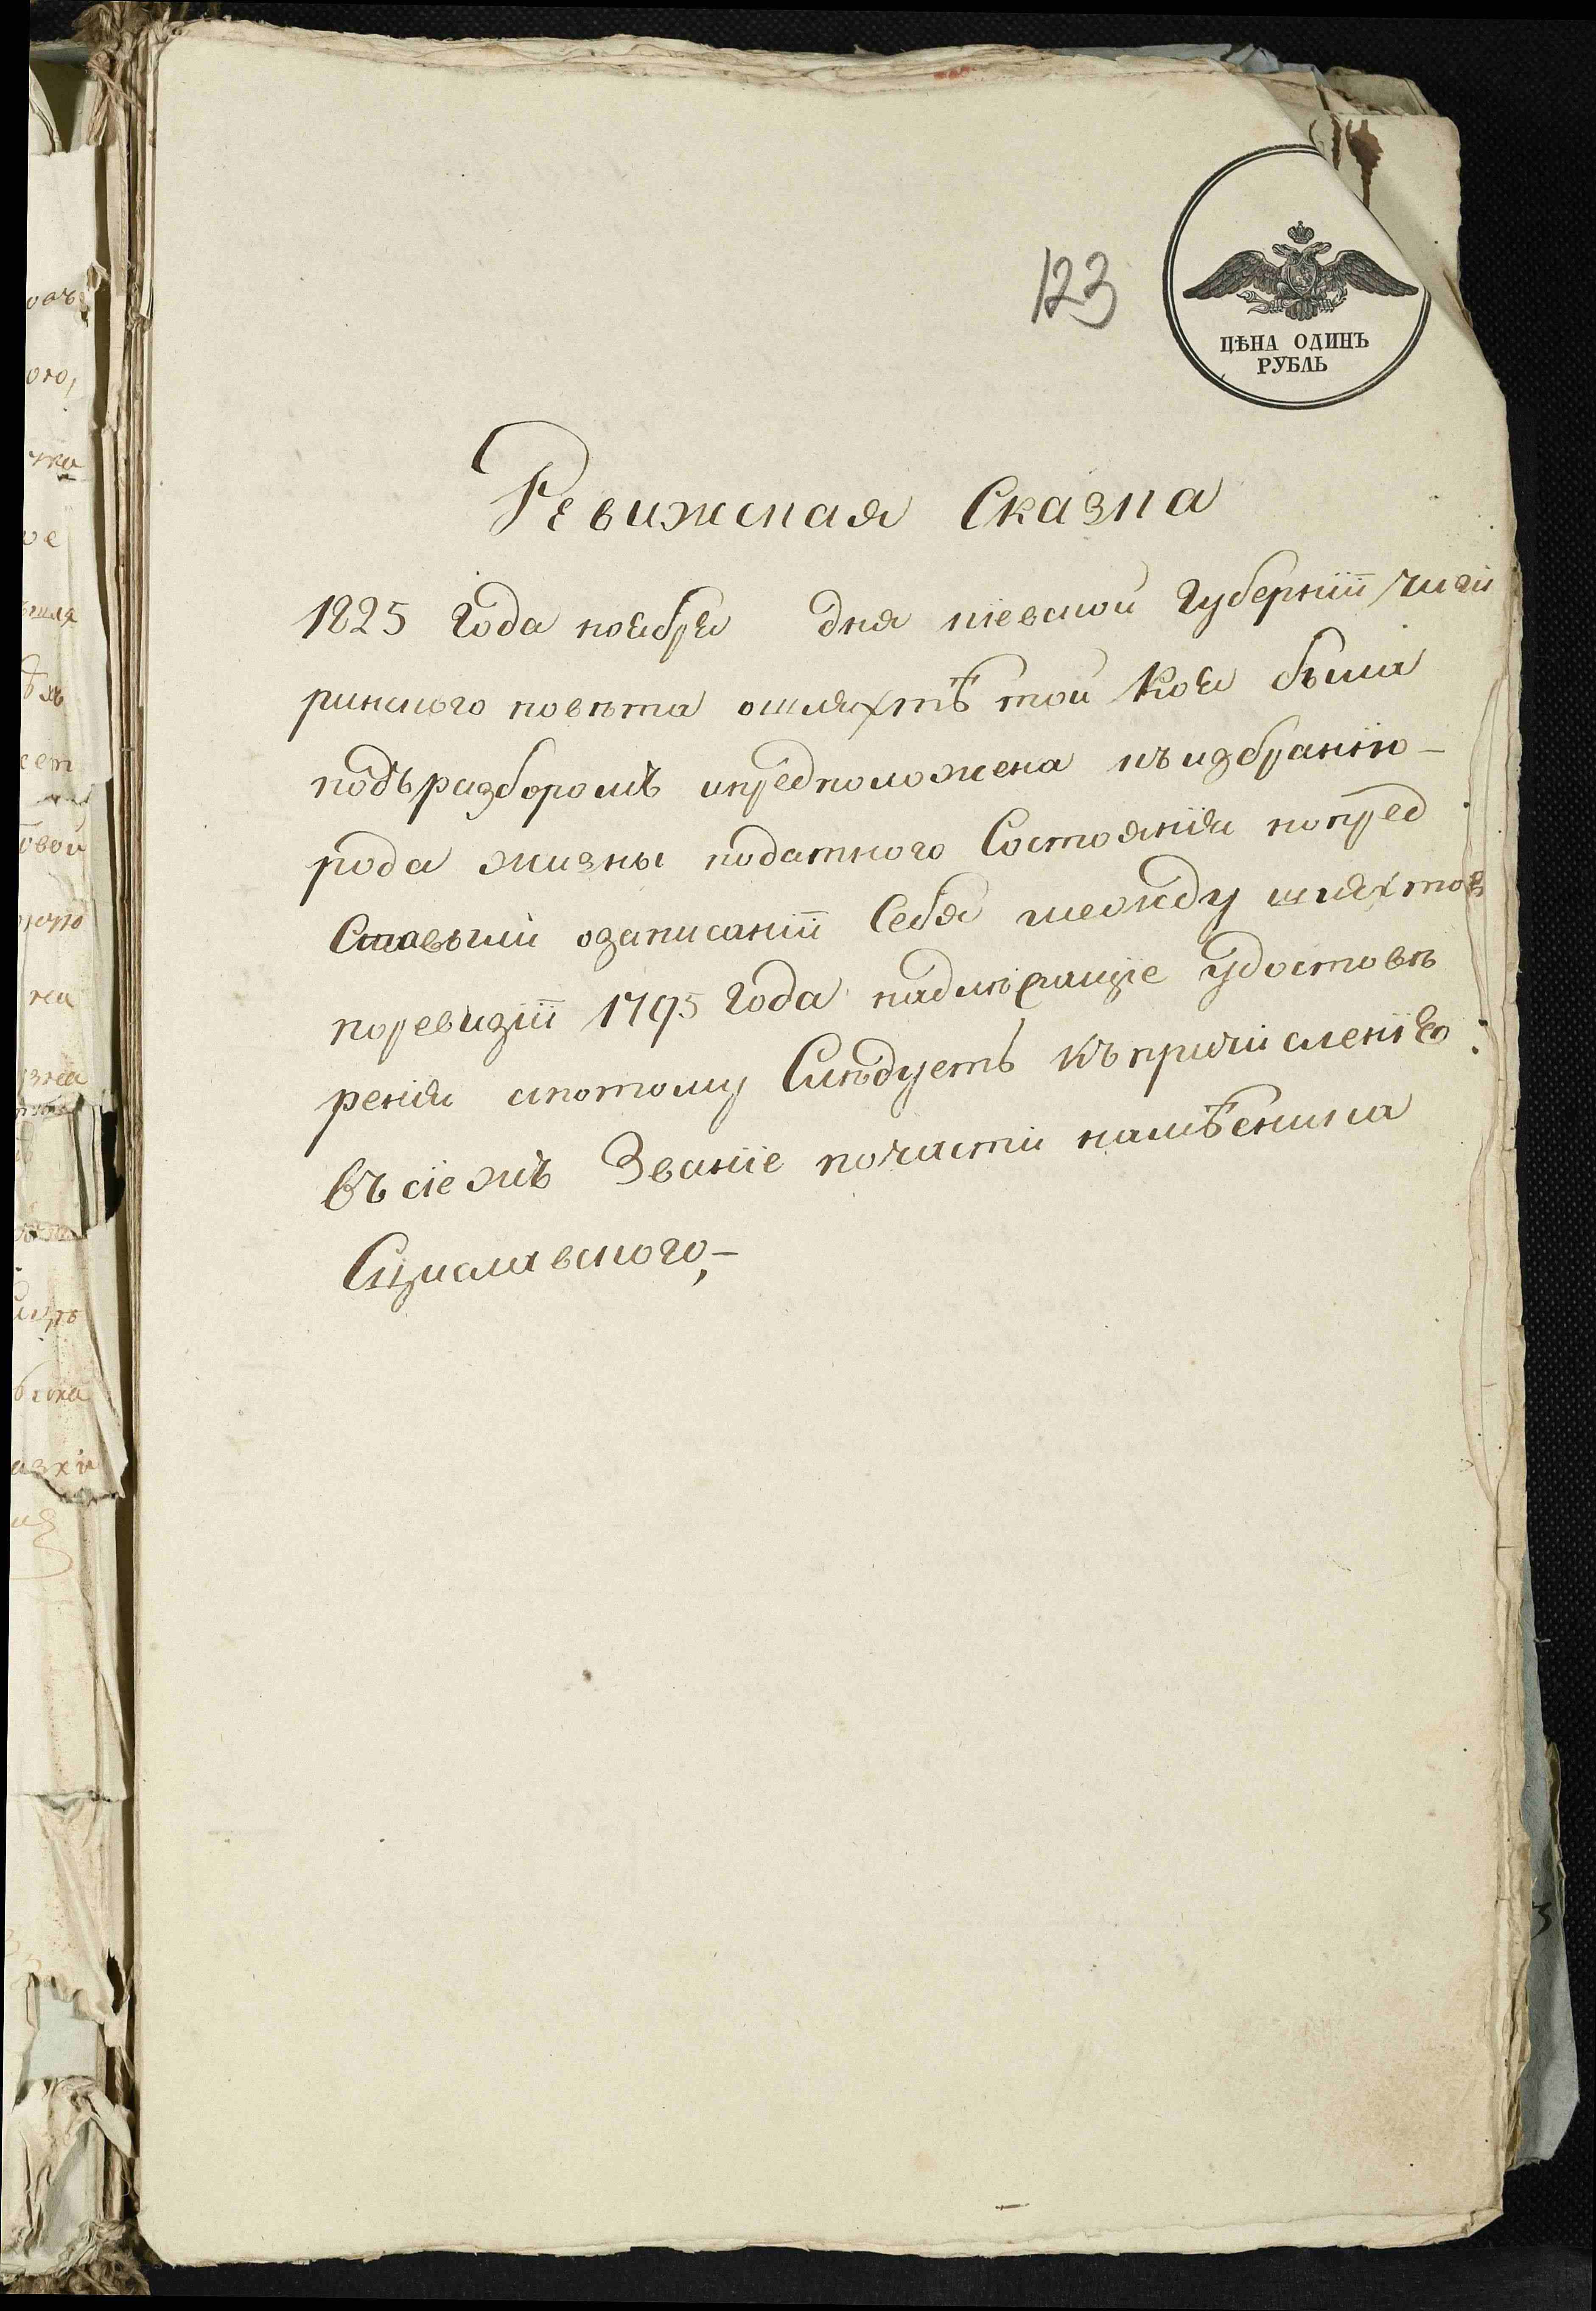 123
ЦѢНА ОДИНЪ
РУБЛЬ
Ревижская Сказка
1825 года ноября дня кіевской губерніи чиги
ринского повѣта ошляхтѣ той коя была
подъ разборомъ ипредположена къ избранію-
рода жизны податного Состоянія попред
Ставыли озаписаніи Себя между шляхтою
поревизіи 1795 года надлѣжащіе удостовѣ
ренія ипотому Слѣдуетъ къ причисленію
въ сіежъ Званіе почасти намѣсника
Сциславского,-